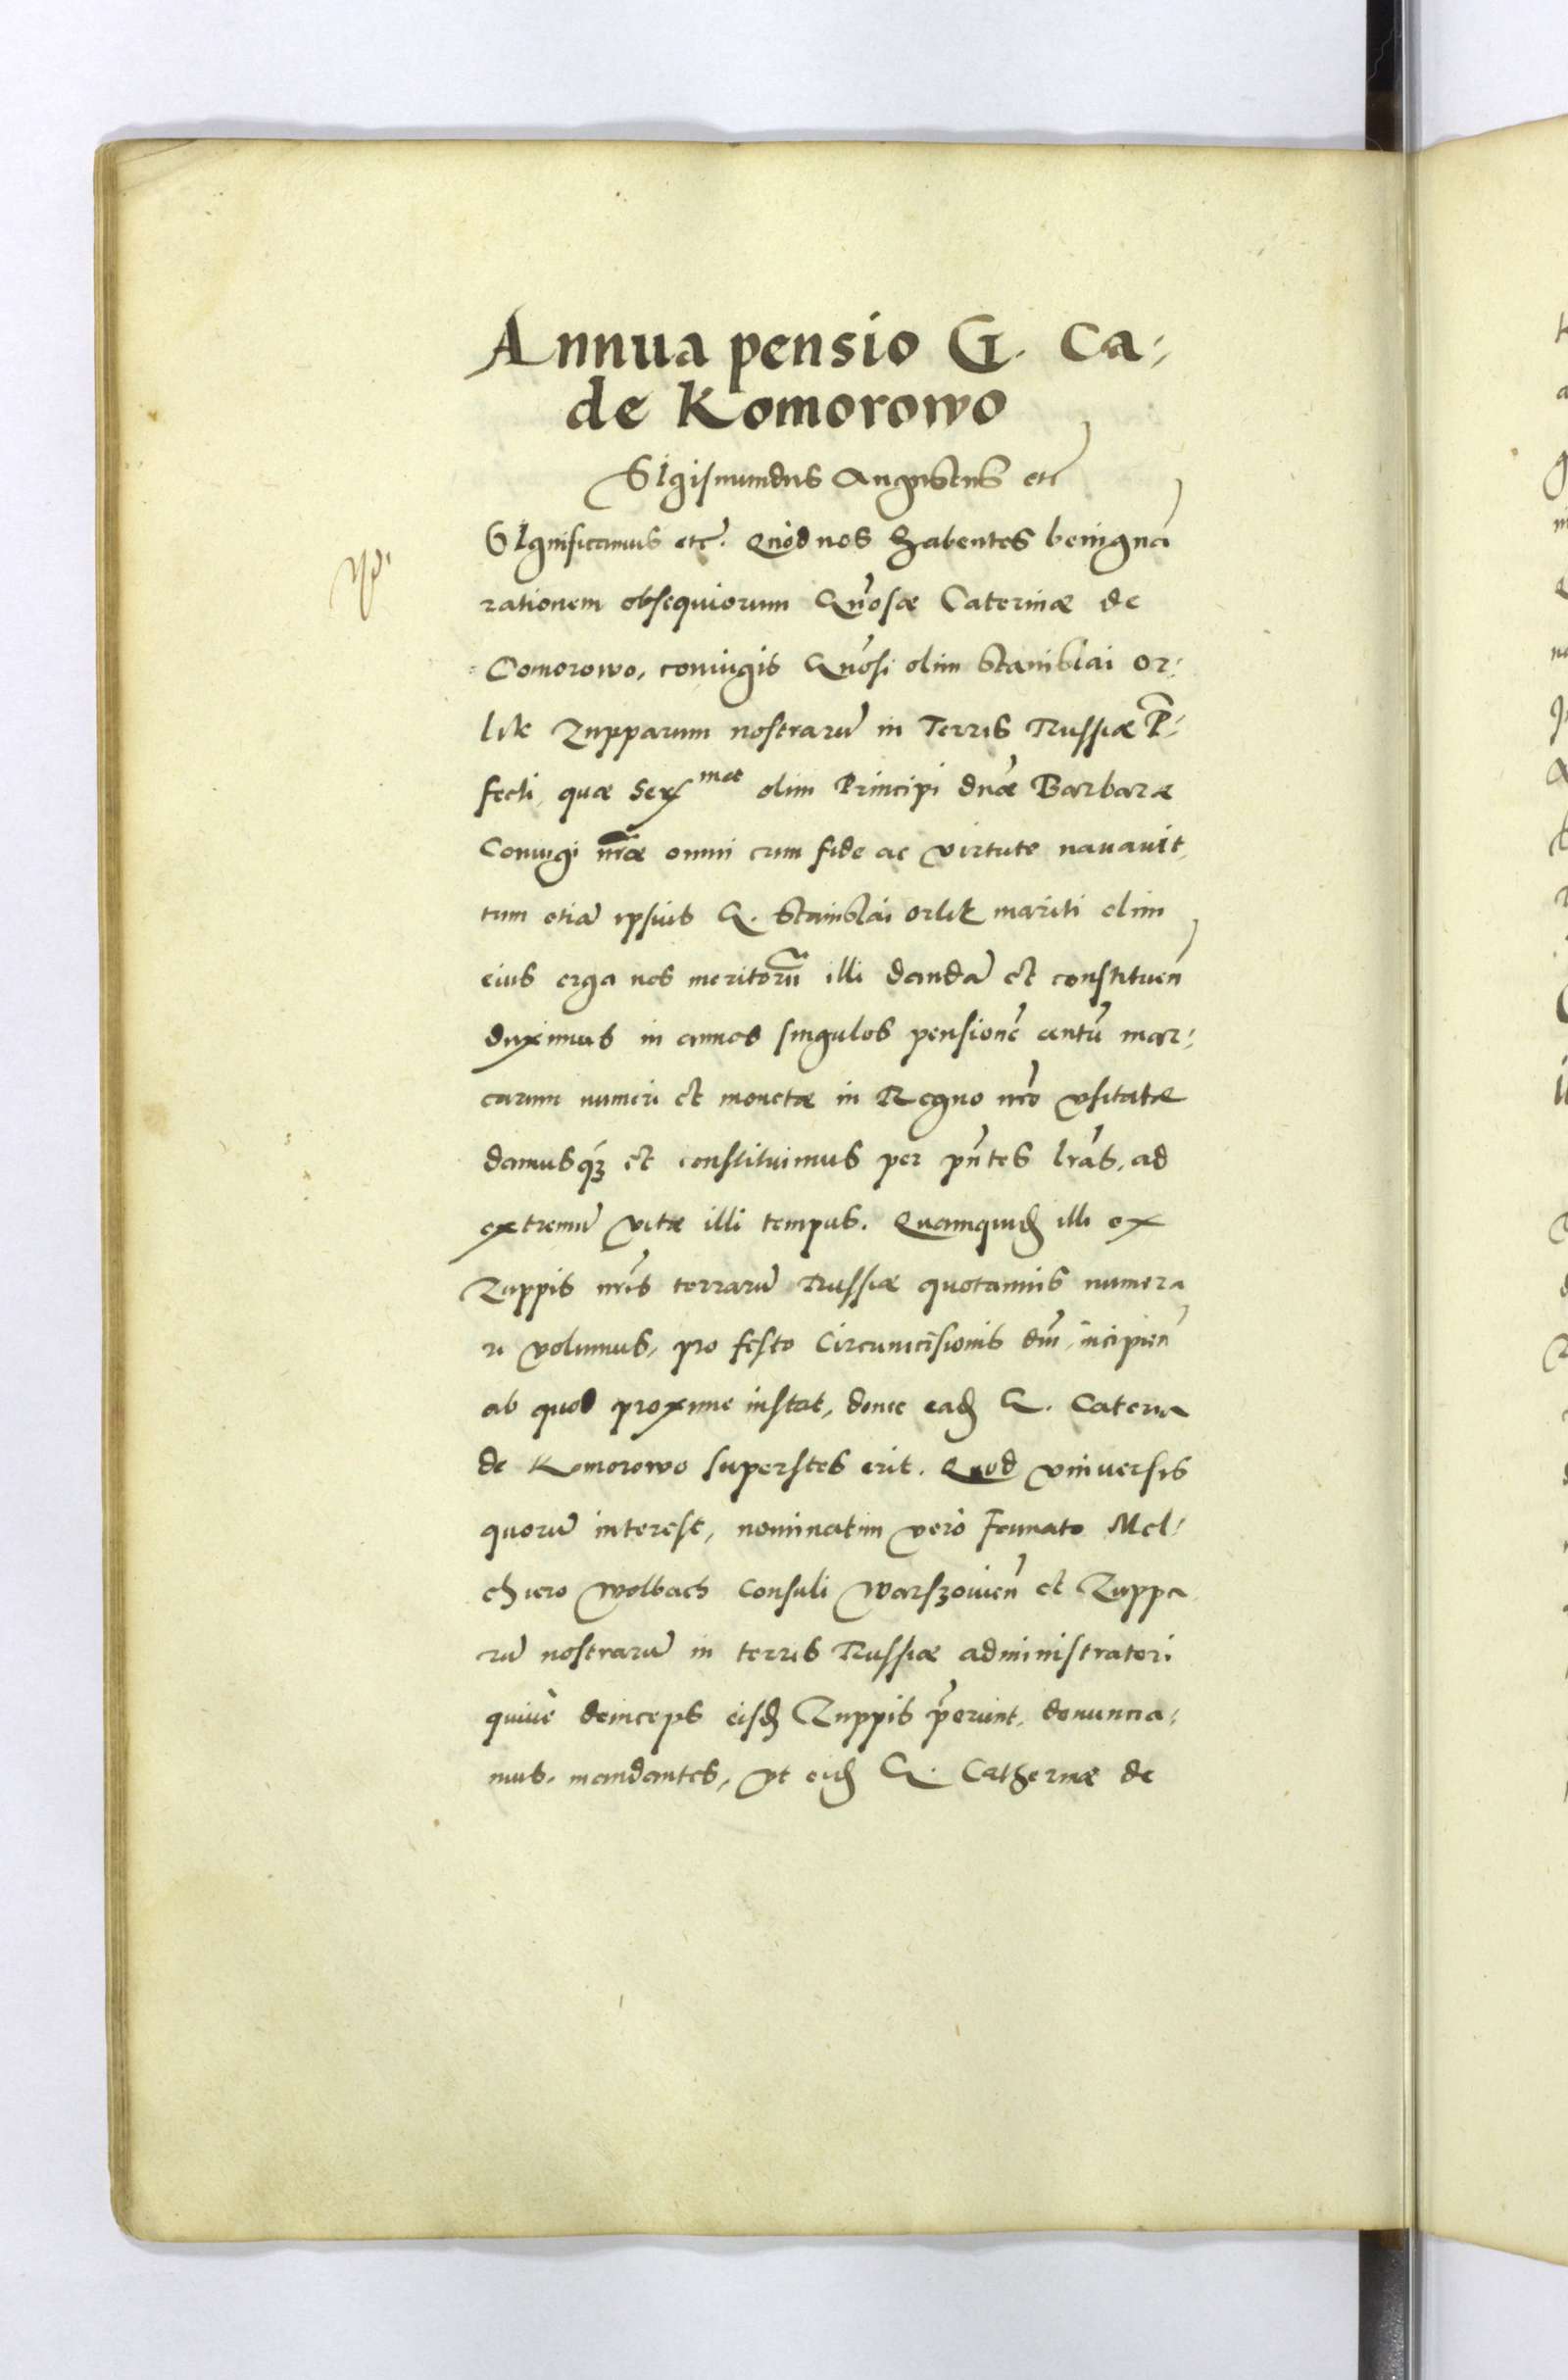 Annua pensio G. Ca-
de Komorowo
SIgismundus Augustus etc
SIgnificamus etc. Quòd nos habentes benignã
rationem obsequiorum Gñosæ Caterinæ de
Comorowo, coniugis Gñosi olim Stanislai Or-
lik Zupparum nostrarũ in Terris Russiæ P̃-
fecti, quæ Ser mæ olim Principi dñæ Barbaræ
Coniugi nr̃æ omni cum fide ac virtute nauauit,
tum etiã ipsius G. Stanislai Orlik mariti olim
eius erga nos meritorũ illi dandã et constituen̄
duximus in annos singulos pensionẽ centũ mar-
carum numeri et monetæ in Regno nr̃o vsitatæ
damusq3 et constituimus per pñtes lr̃as, ad
extremũ vitæ illi tempus. Quamquid illi ex
Zuppis nr̃is terrarũ Russiæ quotannis numera
ri volumus, pro festo Circumcisionis dñi, incipien̄
ab quod proxime instat, donec ead G. Caterina
de Komorowo superstes erit. Quod vniuersis
quorũ interest, nominatim verò Famato Mel-
chiero Wolbach Consuli Warszouien̄ et Zuppa
rũ nostrarũ in terris Russiæ administratori
quiue deinceps eisd Zuppis p̃erunt, denuncia-
mus. mandantes, vt eid G. Catherinæ de